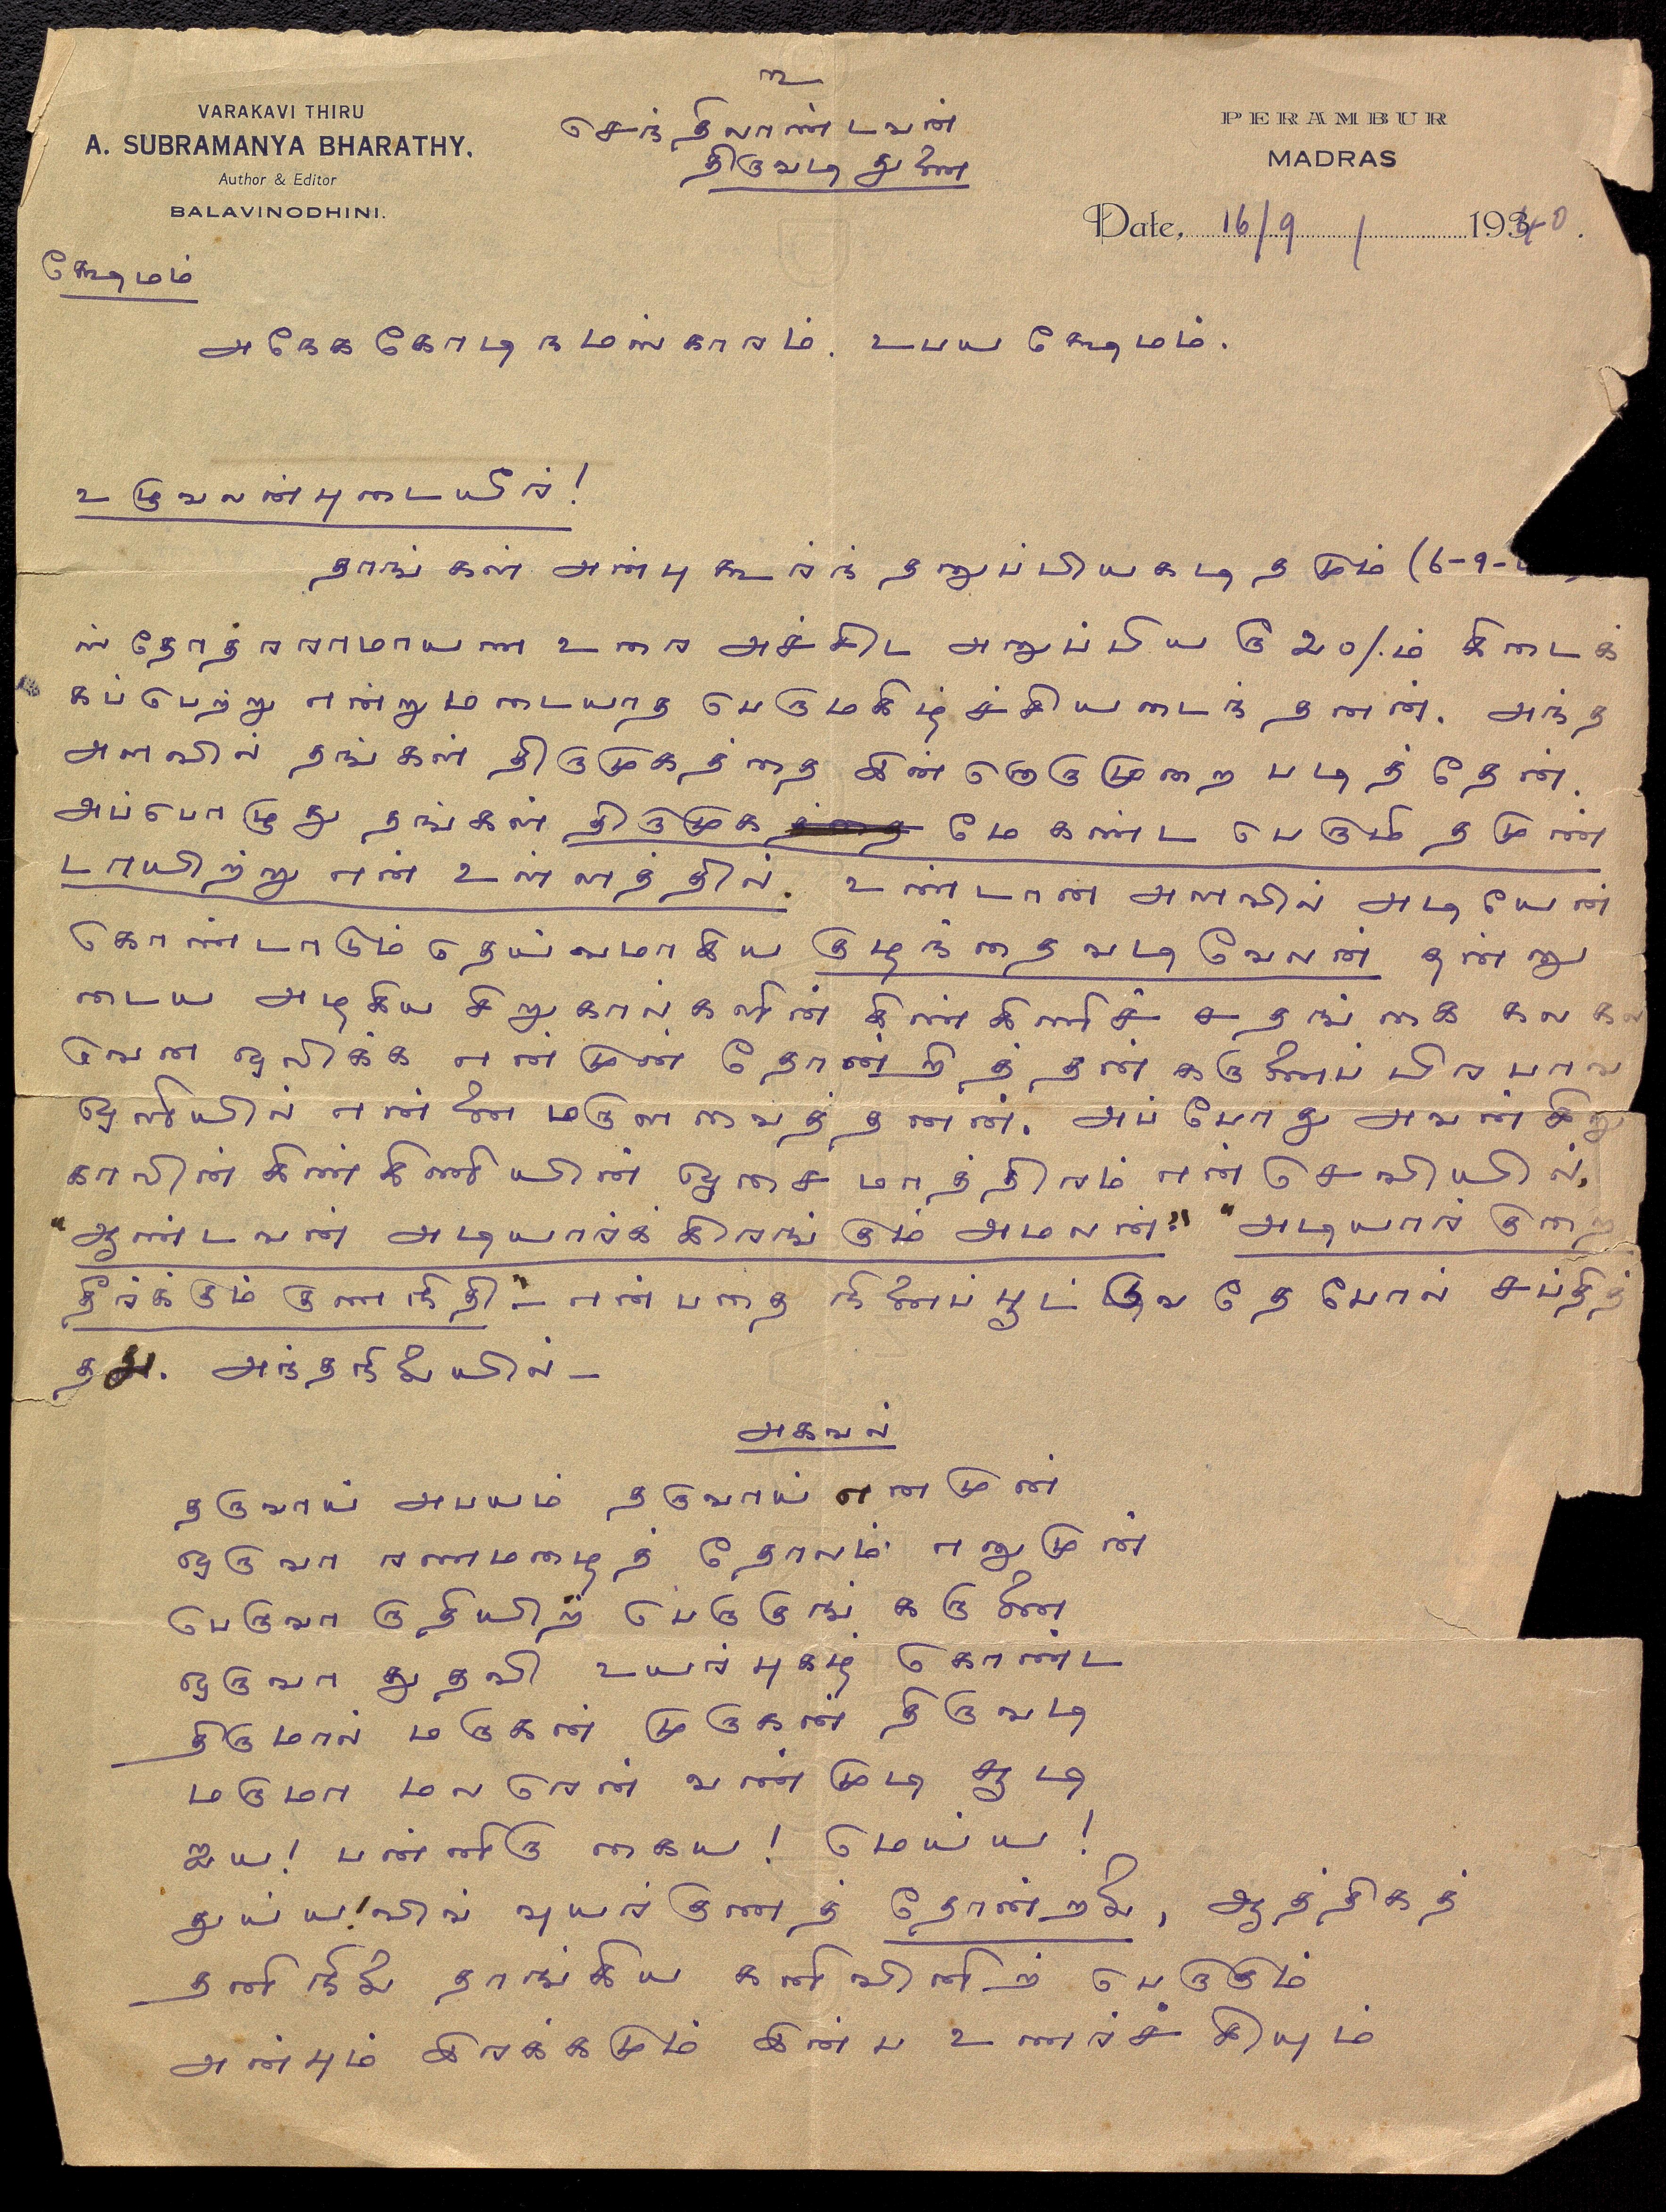 உ
VARAKAVI THIRU
A. SUBRAMANYA BHARATHY.
Author & Editor
BALAVINODHINI.
செந்திலாண்டவன்
திருவடி துணை
PERAMBUR
MADRAS
Date, 16/9/1940.
க்ஷேமம்
அநேக கோடி நமஸ்காரம். உபய க்ஷேமம்.
உழுவலன்புடையீர்!
தாங்கள் அன்பு கூர்ந் தனுப்பிய கடிதமும் (6-9-
ஸ்தோத்ரராமாயண உரை அச்சிட அனுப்பிய ரூ 20/.ம் கிடைக்
கப்பெற்று என்றுமடையாத பெருமகிழ்ச்சியடைந்தனன். அந்த
அளவில் தங்கள் திருமுகத்தை இன்னொருமுறை படித்தேன்.
அப்பொழுது தங்கள் திருமுகமே கண்ட பெருமிதமுண்
டாயிற்று என் உள்ளத்தில். உண்டான அளவில் அடியேன்
கொண்டாடும் தெய்வமாகிய குழந்தைவடிவேலன் தன்னு
டைய அழகிய சிறுகால்களின் கிண்கிணிச் சதங்கை கலகல
வென ஒலிக்க என்முன் தோன்றித் தன் கருணைப் பிரபாவ
ஒளியில் என்னை மருளவைத்தனன். அப்போது அவன் சிறு
காலின் கிண்கிணியின் ஓசை மாத்திரம் என் செவியில்,
"ஆண்டவன் அடியார்க் கிரங்கும் அமலன்" "அடியார் குறை
தீர்க்கும் குணநிதி" - என்பதை நினைப்பூட்டுவதே போல் சப்தித்
தது. அந்தநிலையில் -
அகவல்
தருவாய் அபயம் தருவாய் எனமுன்
ஒருவா ரணமழைத் தோலம் எனுமுன்
பெருவா ருதியிற் பெருகுங் கருணை
ஒருவா துதவி உயர்புகழ் கொண்ட
திருமால் மருகன் முருகன் திருவடி
மருமா மலரென் வண்முடி சூடி
ஐய! பன்னிரு கைய! மெய்ய!
துய்ய!வில் வுயர்குணத் தோன்றலை, ஆத்திகத்
தனிநிலை தாங்கிய களிவினிற் பெருகும்
அன்பும் இரக்கமும் இன்ப உணர்ச்சியும்